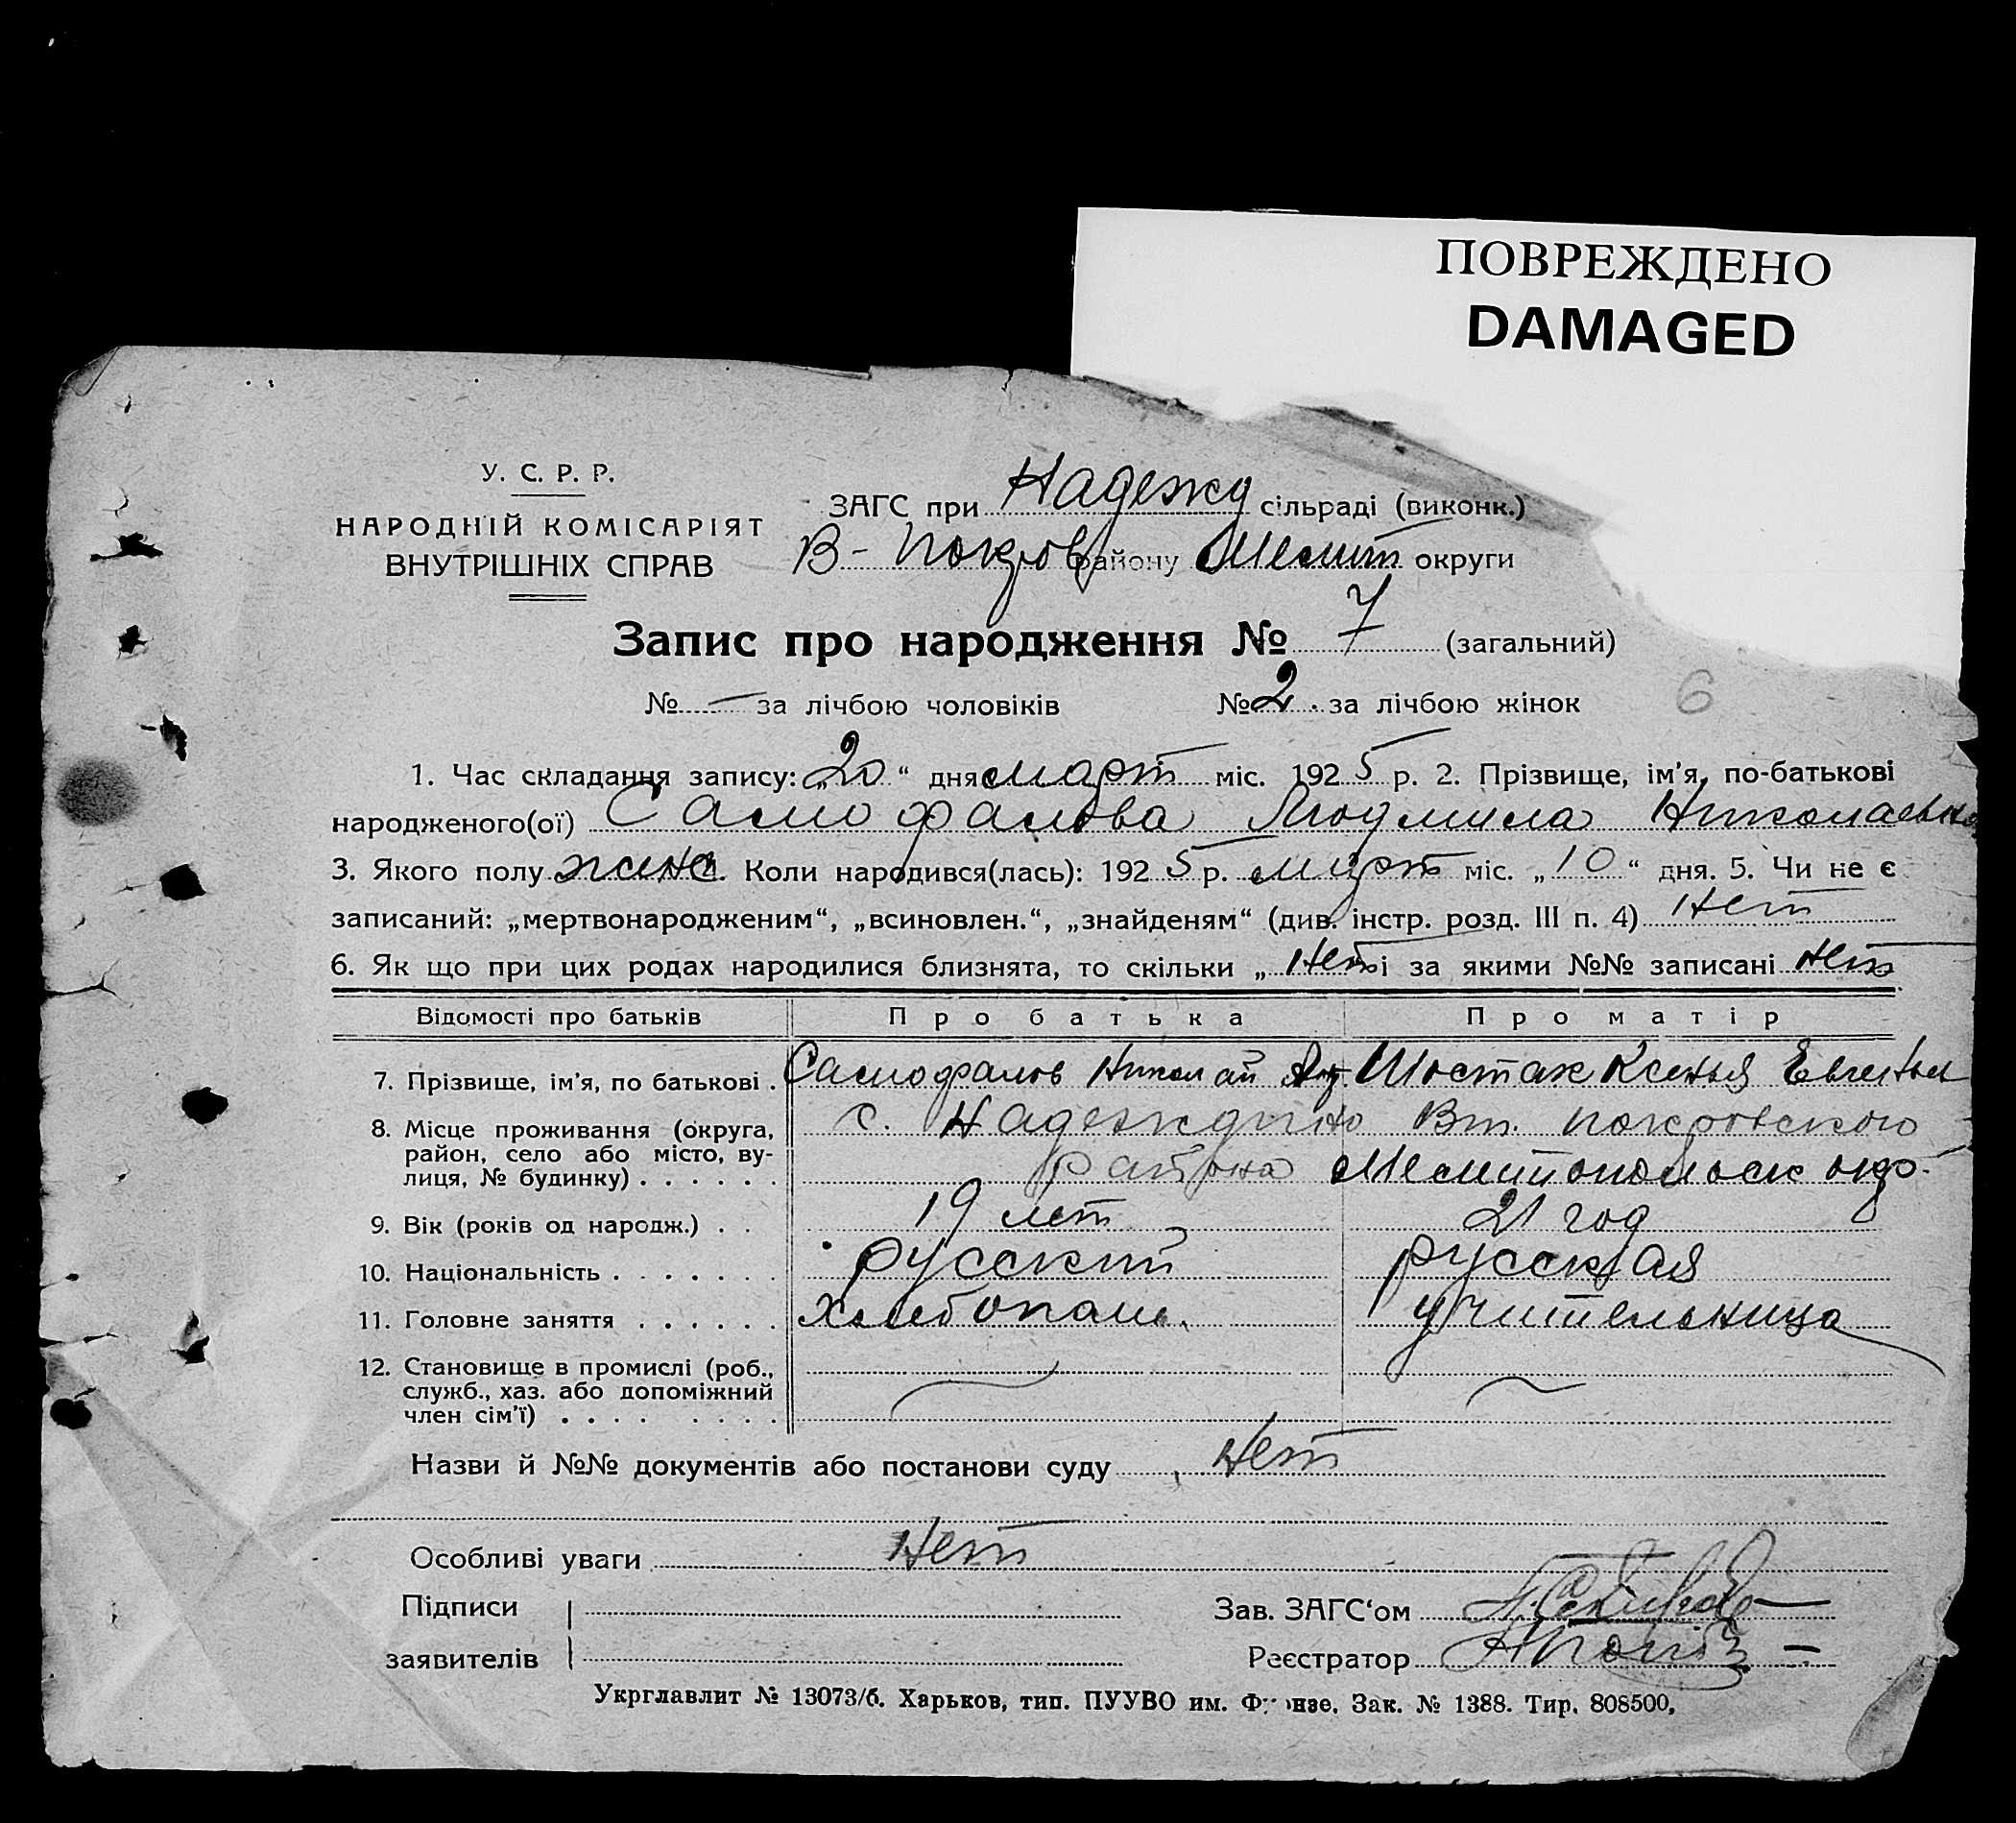 ПОВРЕЖДЕНО
DAMAGED
У. С. Р. Р.
НАРОДНІЙ КОМІСАРІЯТ
ВНУТРІШНІХ СПРАВ
ЗАГС при Надежд сільраді (виконк.)
В-Покров району Мелит округи
Запис про народження № 7 (загальний)
№ — за лічбою чоловіків № 2 за лічбою жінок
6
1. Час складання запису: „20“ дня март міс. 1925 р. 2. Прізвище, ім’я, по-батькові
народженого(ої) Самофалова Людмила Николаевна
3. Якого полу жена Коли народився(лась): 1925 р. март міс. „10“ дня. 5. Чи не є
записаний: „мертвонародженим“, „всиновлен.“, „знайденям“ (див. інстр. розд. III п. 4) Нет
6. Як що при цих родах народилися близнята, то скільки „ Нет і за якими №№ записані Нет
Відомості про батьків Про батька Про матір
7. Прізвище, ім’я, по батькові . Самофалов Николай Шостак Ксенья Евгеньев
8. Місце проживання (округа, с. Надеждино Вт. покровского
район, село або місто, ву-
лиця, № будинку) . . . . . . района Мелитопольск окр.
9. Вік (років од народж.) . . 19 лет 21 год
10. Національність . . . . . . . русский русская
11. Головне заняття . . . . . . Хлебопаш. учительница
12. Становище в промислі (роб.,
служб., хаз. або допоміжний
член сім’ї) . . . . . . . .
Назви й №№ документів або постанови суду Нет
Особливі уваги Нет
Підписи Зав. ЗАГС‘ом
заявителів Реєстратор
Укрглавлит № 13073/б. Харьков, тип. ПУУВО им. Фрунзе. Зак. № 1388. Тир. 808500,